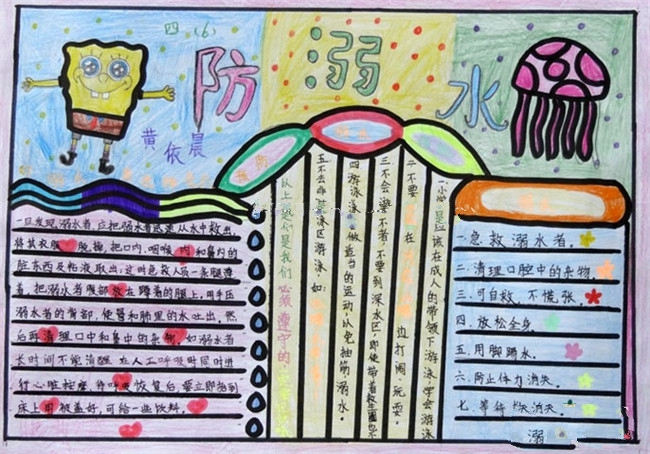 四(6)
防溺水
黄依晨
一旦发现溺水者,应把溺水者迅速从水中救出,
将其衣服 脱掉,把口内、咽喉 内和鼻的
脏东西及粘液取出,这时急救人员一条腿
者 把溺水者腹部放在 的腿上,用手压
溺水者的背部,使胃和肺里的水吐出。然
后再清理口中和鼻中的杂物,如溺水者
长时间不能清醒,在人工呼吸时同时进
行心脏按摩,待呼吸恢复后,要立即抬到
床上用被盖好,可给一些饮料。
一 小心 是应该在成人的带领下游泳学会游泳
二 不要 在 边打闹、玩耍。
三 不会游泳者,不要到深水区,即使带着救生圈也不
四 游泳 做适当的运动,以免抽筋溺水。
五 不去非 区游泳。如:
以上 是我们必须遵守的,
一.急救溺水者。
二.清理口腔中的杂物。
三.可自救,不慌张。
四.放松全身。
五.用脚踢水。
六.防止体力消失。
七.等待 消失。
溺